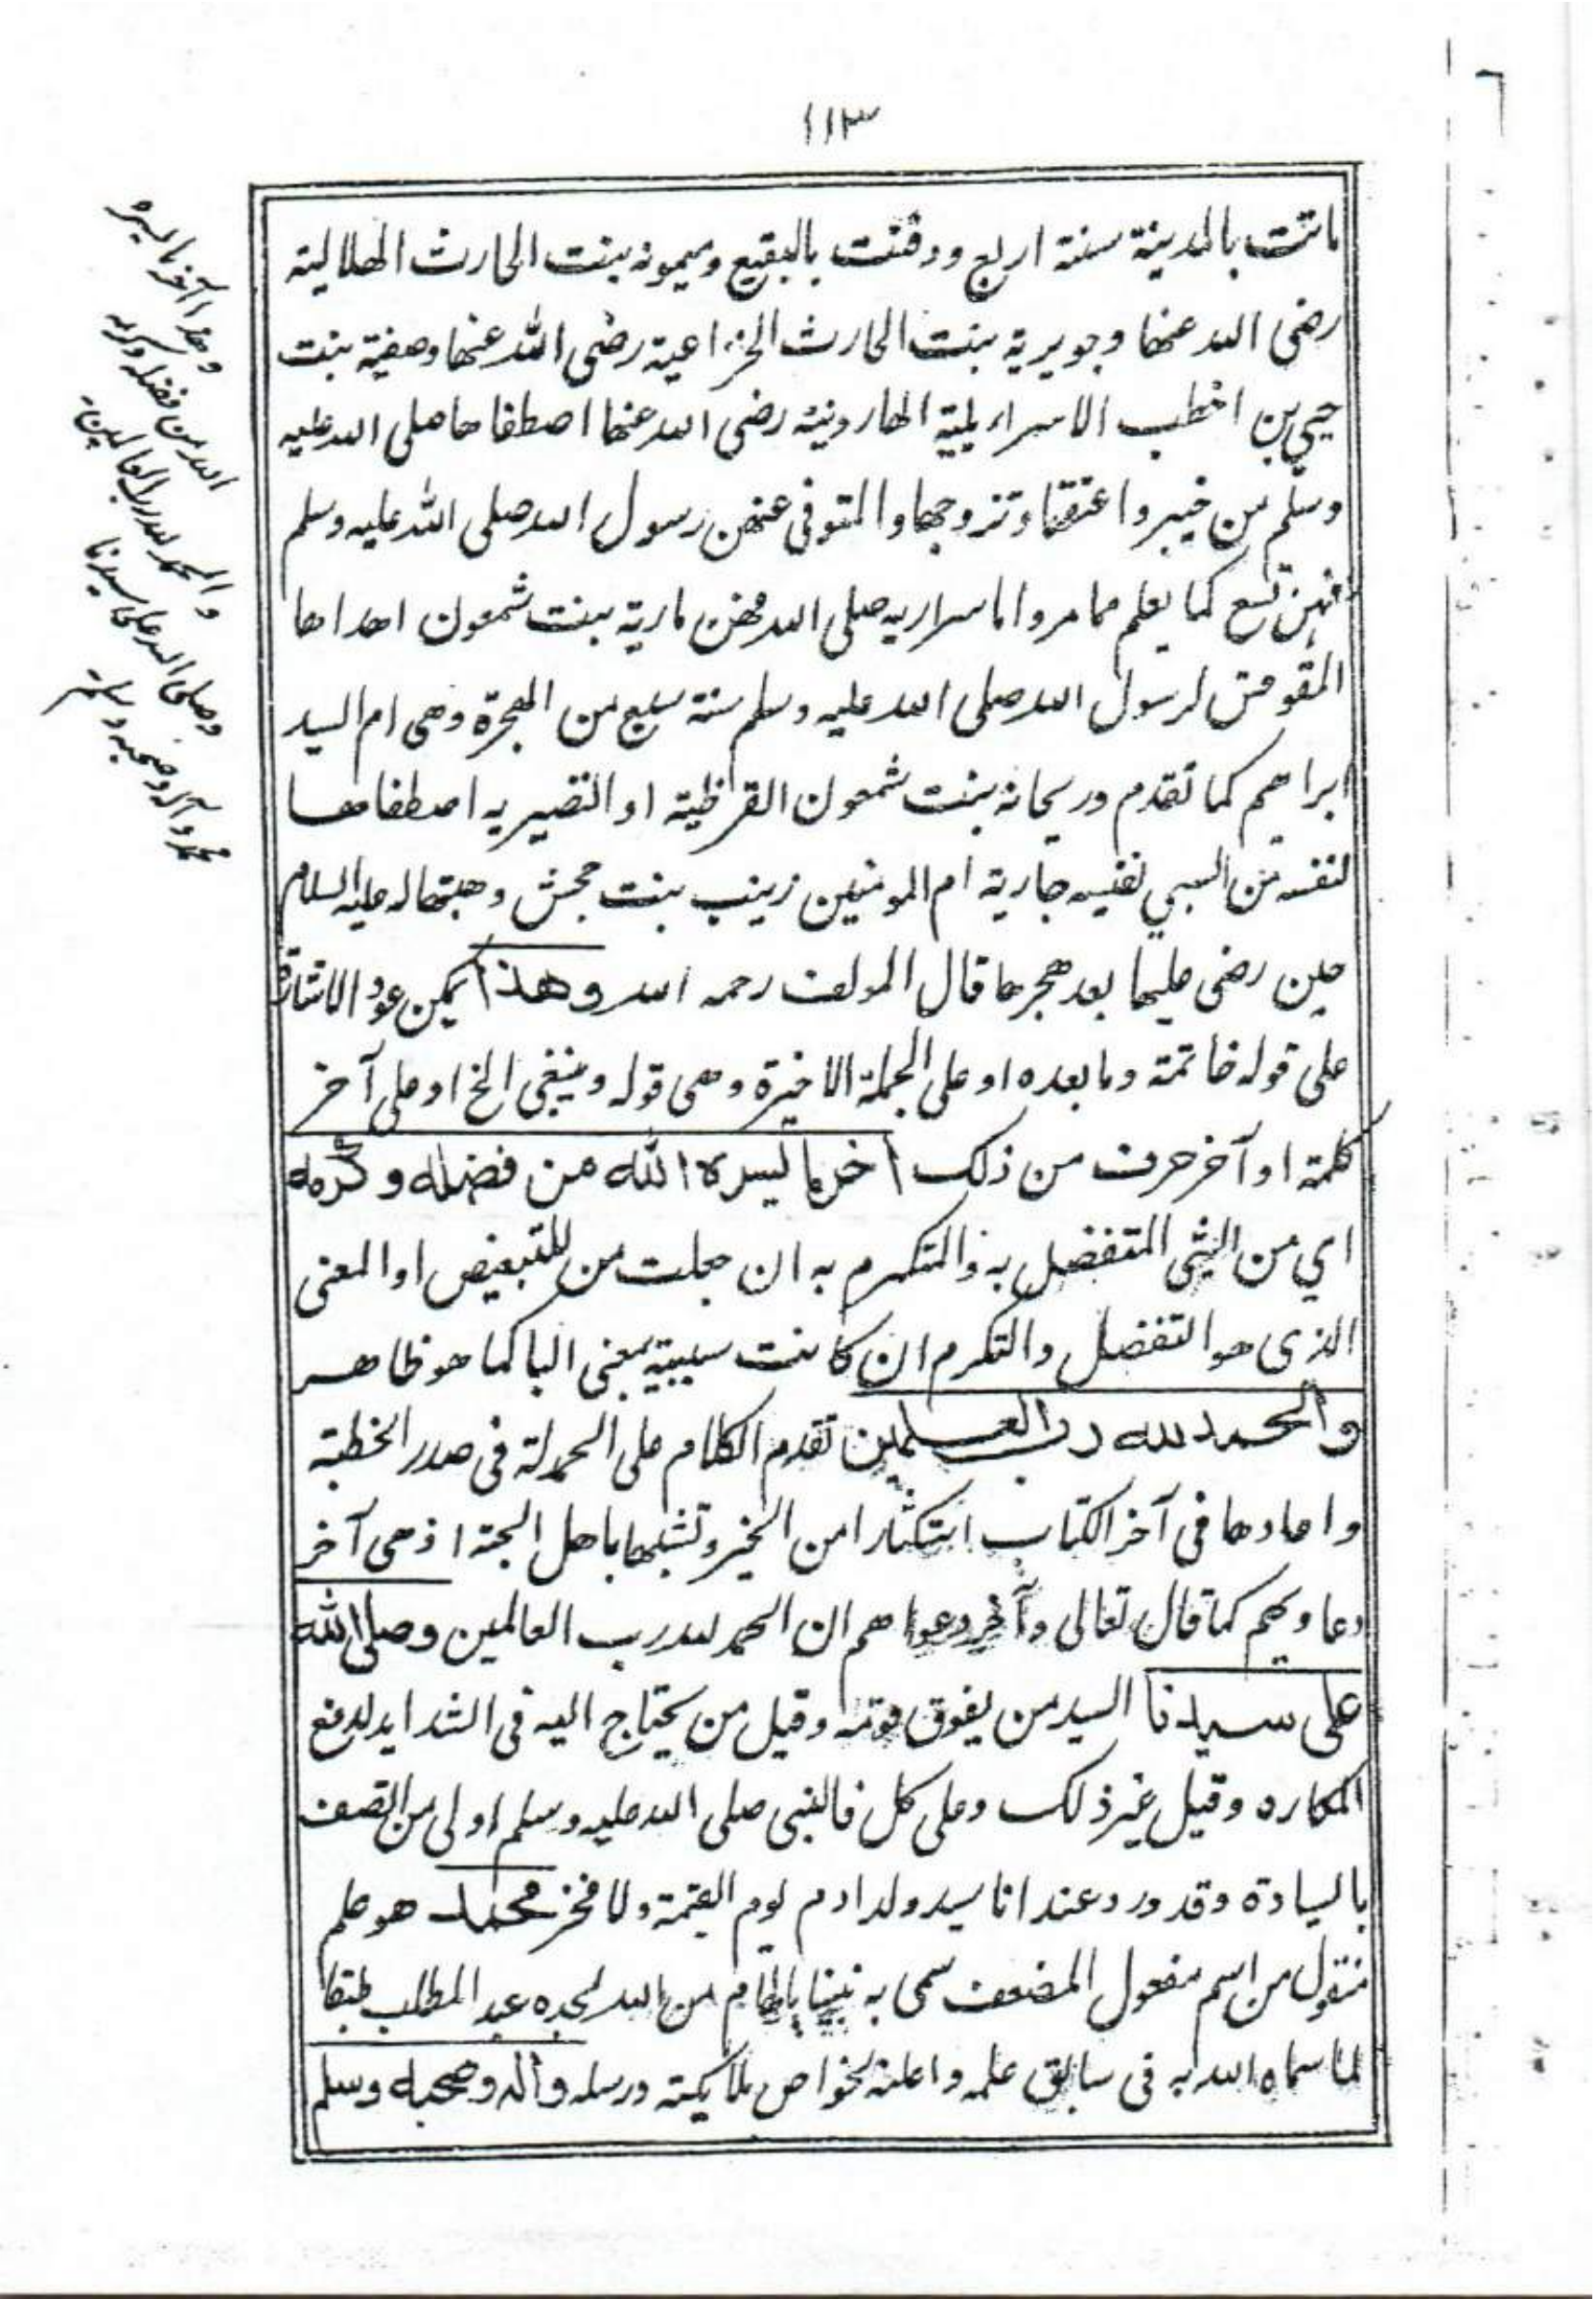 ١١٣
ماتت بالمدينة سنة اربع ودفنت بالبقيع وميمونه بنت الحارث الهلاليته
رضى الله عنها وجويرية بنت الحارث الخزاعية رضى الله عنها وصفية بنت
حيي بن اخطب الاسرايلية الهارونية رضى الله عنها اصطفاها صلى الله عليه
وسلم من خيبر واعتقها وتزوجها والمتوفى عنهن رسول الله صلى الله عليه وسلم
فهن تسع كما يعلم مما مر واما سراريه صلى الله فهن مارية بنت شمعون اهداها
المقوقس لرسول الله صلى الله عليه وسلم سنة سبع من الهجرة وهى ام السيد
ابراهيم كما تقدم وريحانه بنت شمعون القرظية او النضيريه اصطفاها
لنفسه من السبي نفيسه جارية ام المومنين زينب بنت جحش وهبتها له عليه السلام
حين رضى عليها بعد هجرها قال المولف رحمه الله وهذا يمكن عود الاشارة
على قوله خاتمة وما بعده او على الجملة الاخيرة وهى قوله وينبغي الخ او على آخر
كلمة او آخر حرف من ذلك آخر ما يسره الله من فضله وكرمه
اي من الشى المتفضل به والمتكرم به ان جعلت من للتبعيض او المعنى
الذى هو التفضل والتكرم ان كانت سببية بمعنى البا كما هو ظاهر
والحمد لله رب العلمين تقدم الكلام على الحمدلة فى صدر الخطبة
واعادها فى آخر الكتاب استكثارا من الخير وتشبها باهل الجنة اذ هى آخر
دعاويهم كما قال تعالى وآخر دعواهم ان الحمد لله رب العالمين وصلى الله
على سيدنا السيد من يفوق قومه وقيل من يحتاج اليه فى الشدايد لدفع
المكاره وقيل غير ذلك وعلى كل فالنبى صلى الله عليه وسلم اولى من اتصف
بالسيادة وقد ورد عنه انا سيد ولد ادم يوم القيمة ولا فخر محمد هو علم
منقول من اسم مفعول المضعف سمى به نبينا بالهام من الله لجده عبد المطلب طبقا
لما سماه الله به فى سابق علمه واعلنه لخواص ملايكته ورسله وآله وصحبه وسلم
وهذا آخر ما يسره
الله من فضله وكرمه
والحمد لله رب العالمين
وصلى الله على سيدنا
محمد وآله وصحبه وسلم